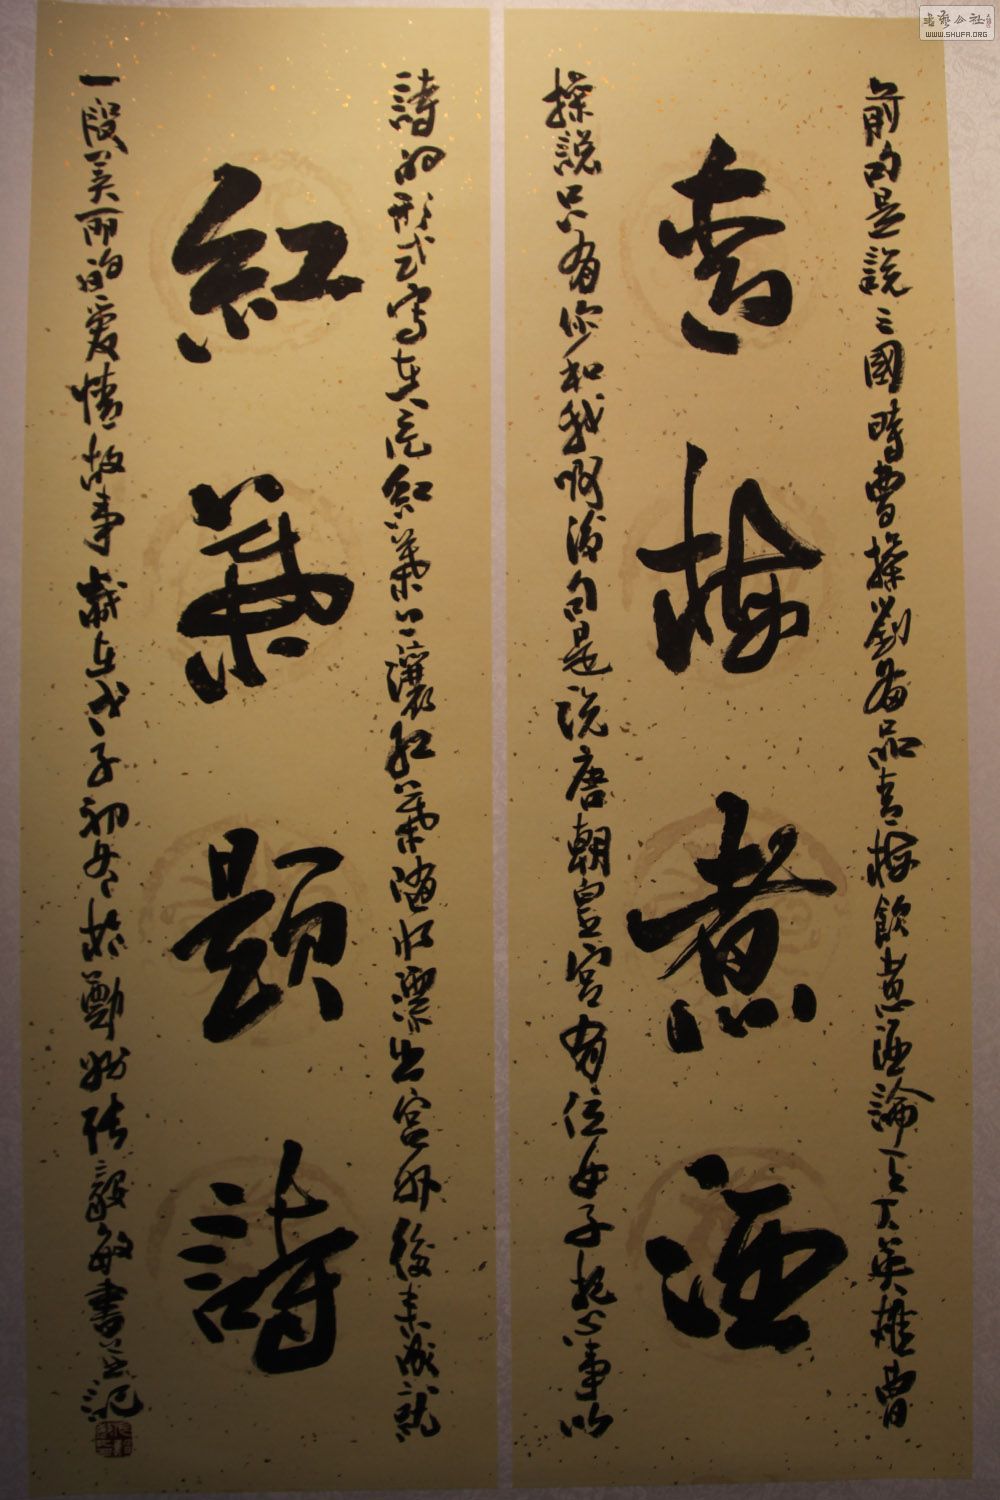 青梅煮酒
前句是説三國時曹操劉备品青梅飲煮酒論天下英雄曹
操説只有你和我啊後句是说唐朝皇宫有位女子把心事以
紅葉題詩
詩的形式寫在一片紅葉上讓紅葉随水漂出宫外後来成就
一段美丽的爱情故事歲在戊子初冬於張毅敏書并記
書藝公社
WWW.SHUFA.ORG